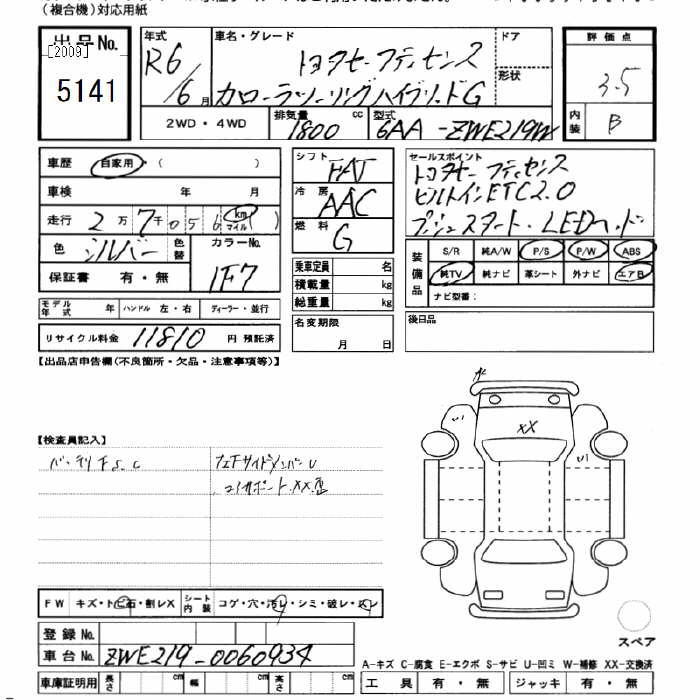 (複合機)対応用紙
出品No.
[2009]
5141
年式 R6/6月
車名・グレード トヨタセーフティセンス
カローラツーリングハイブリッドG
ドア
形状
評価点
3.5
内装 B
2WD・4WD 排気量 1800 cc 型式 6AA-ZWE219W
車歴 自家用・( )
車検 年 月
走行 2万7千056 km マイル ( )
色 シルバー 色替 カラーNo. 1F7
保証書 有・無
モデル年式 年 ハンドル 左・右 ディーラー・並行
リサイクル料金 11810 円 預託済
シフト FAT
冷房 AAC
燃料 G
乗車定員 名
積載量 kg
総重量 kg
名変期限
月 日
セールスポイント
トヨタセーフティセンス
ビルトインETC2.0
プッシュスタート・LEDヘッド
装備品 S/R 純A/W P/S P/W ABS
純TV 純ナビ 革シート 外ナビ エアB
ナビ型番:
後日品
【出品店申告欄(不良箇所・欠品・注意事項等)】
【検査員記入】
XX
FW キズ・トビ石・割レX シート内装 コゲ・穴・汚レ・シミ・破レ・スレ
登録No.
車台No. ZWE219-0060934
車庫証明用 長さ cm 幅 cm 高さ cm
スペア
A-キズ C-腐食 E-エクボ S-サビ U-凹ミ W-補修 XX-交換済
工具 有・無 ジャッキ 有・無